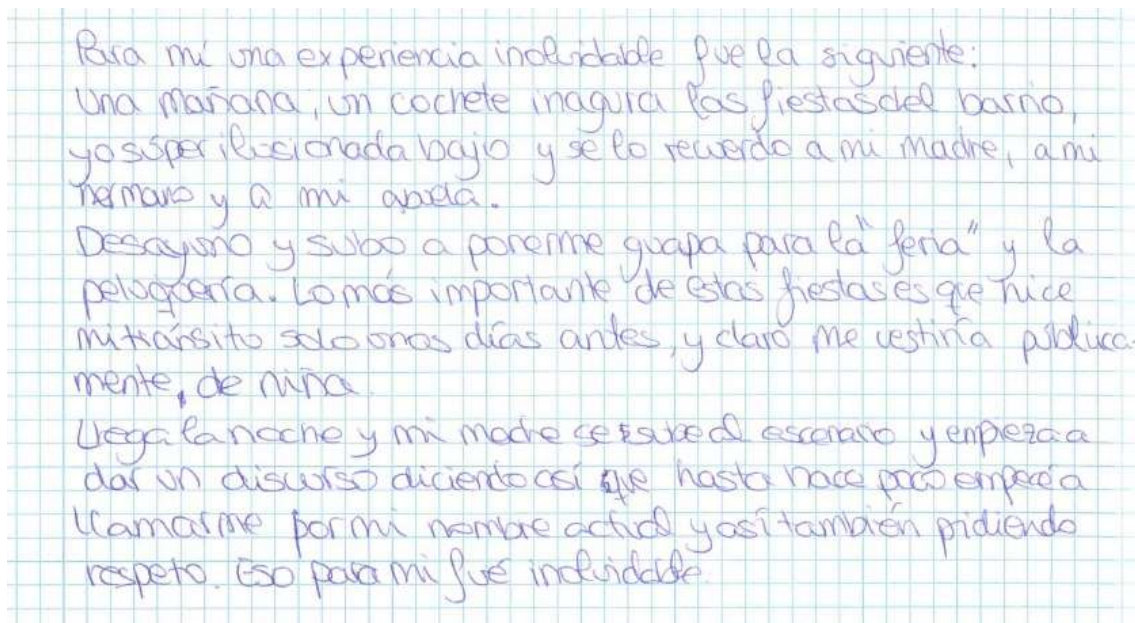 Para mí una experiencia inolvidable fue la siguiente:
Una mañana, un cochete inagura las fiestas del barrio,
yo súper ilusionada bajo y se lo recuerdo a mi madre, a mi
hermano y a mi abuela.
Desayuno y subo a ponerme guapa para la "feria" y la
peluquería. Lo más importante de estas fiestas es que hice
mi tránsito solo unos días antes, y claro me vestiría pública-
mente, de niña.
Llega la noche y mi madre se sube al escenario y empieza a
dar un discurso diciendo así que hasta hace poco empecé a
llamarme por mi nombre actual y así también pidiendo
respeto. Eso para mi fué inolvidable.